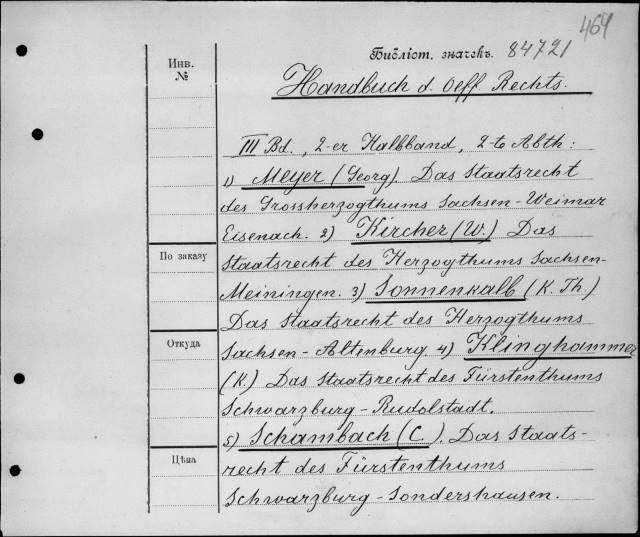 464
Библіот. значекъ. 84721
Инв.
№
Handbuch d. Oeff. Rechts.
III Bd., 2-er Halbband, 2-te Abth:
1) Meyer (Georg). Das Staatsrecht
des Grossherzogthums Sachsen-Weimar
Eisenach. 2) Kircher (W.) Das
По заказу
Staatsrecht des Herzogthums Sachsen-
Meiningen. 3) Sonnenkalb (K. Th.)
Das Staatsrecht des Herzogthums
Откуда
Sachsen-Altenburg 4) Klinghammer
(K.) Das Staatsrecht des Fürstenthums
Schwarzburg-Rudolstadt.
5) Schambach (C.). Das Staats-
Цѣна
recht des Fürstenthums
Schwarzburg-Sondershausen.